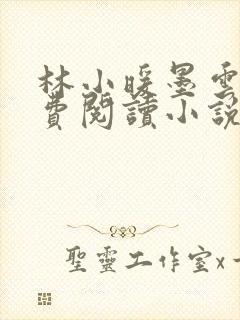 林小暖墨雲
費閱讀小說
聖靈工作室x一